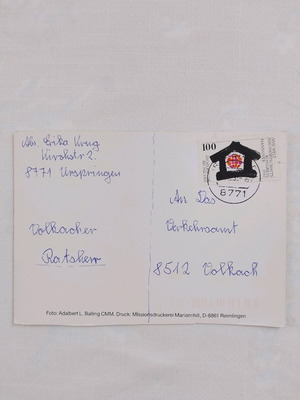 Abs. Erika Krug
Kirchstr 2.
8771 Urspringen
Volkacher
Ratsherr
100
8771
An Das
Verkehrsamt
8712 Volkach
Foto: Adalbert L. Balling CMM. Druck: Missionsdruckerei Mariannhill, D-8861 Reimlingen